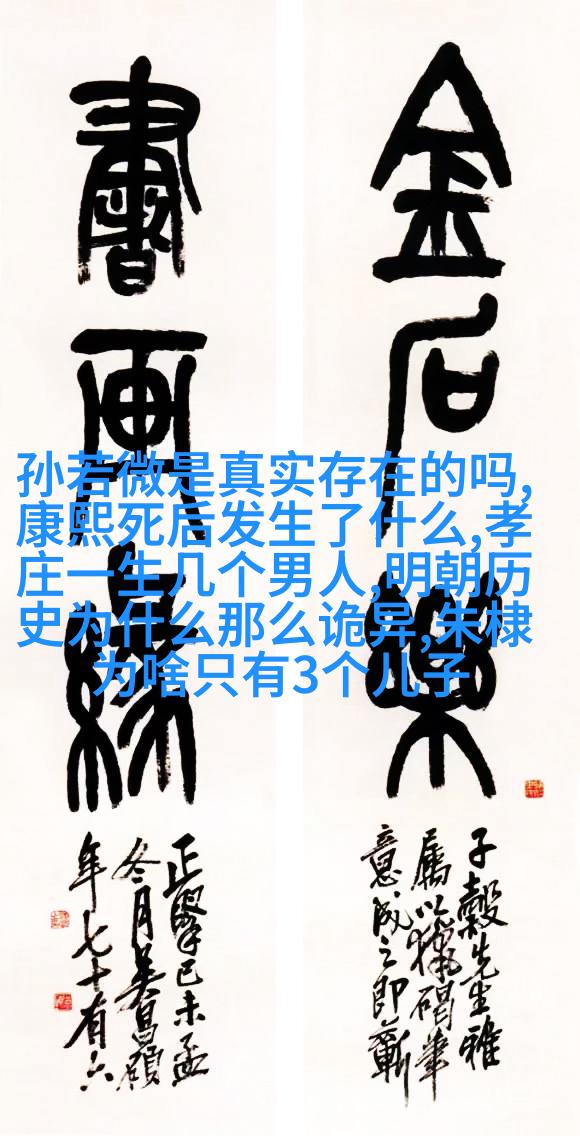 孙若微是真实存在的吗,
康熙死后发生了什么,孝
庄一生几个男人,明朝历
史为什么那么诡异,朱棣
为啥只有3个儿子
金石樂
書畫緣
子穀先生雅
屬以獵碣筆
意成之即蘄
正學己未孟
冬月吳昌碩
年七十有六